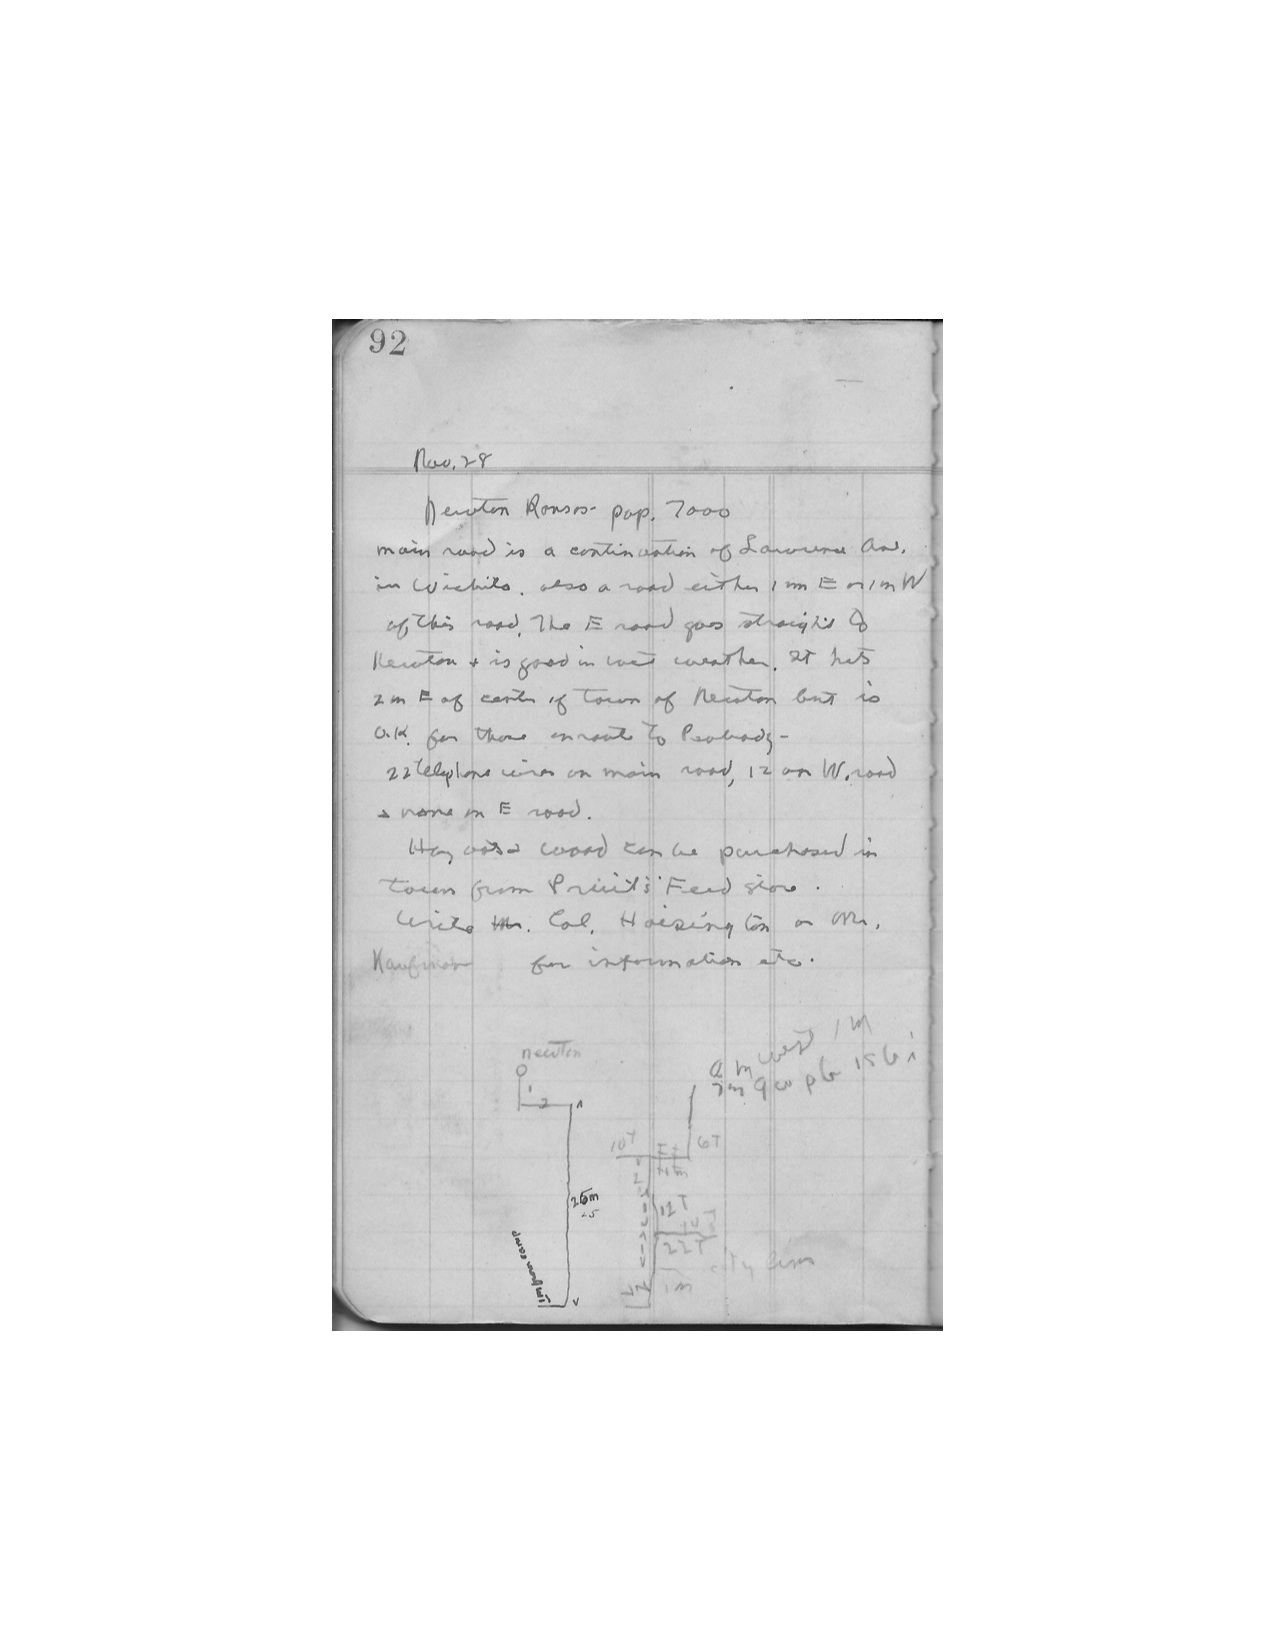 92
Nov. 28
Newton Kansas - pop. 7000
main road is a continuation of Lawrence Ave.
in Wichita. also a road either 1 m E or 1 m W
of this road. The E road goes straight to
Newton + is good in wet weather. It hits
2 m E of center of town of Newton but is
O.K. for those enroute to Peabody -
22 telephone wires on main road, 12 on W. road
+ none on E road.
Hay oats + wood can be purchased in
town from Feed store.
Write Mr. Col. Hoisington or Mr.
Kaufman for information etc.
newton
west 1 M
1
2
10T
6T
25m
12T
22T
1m
city limits